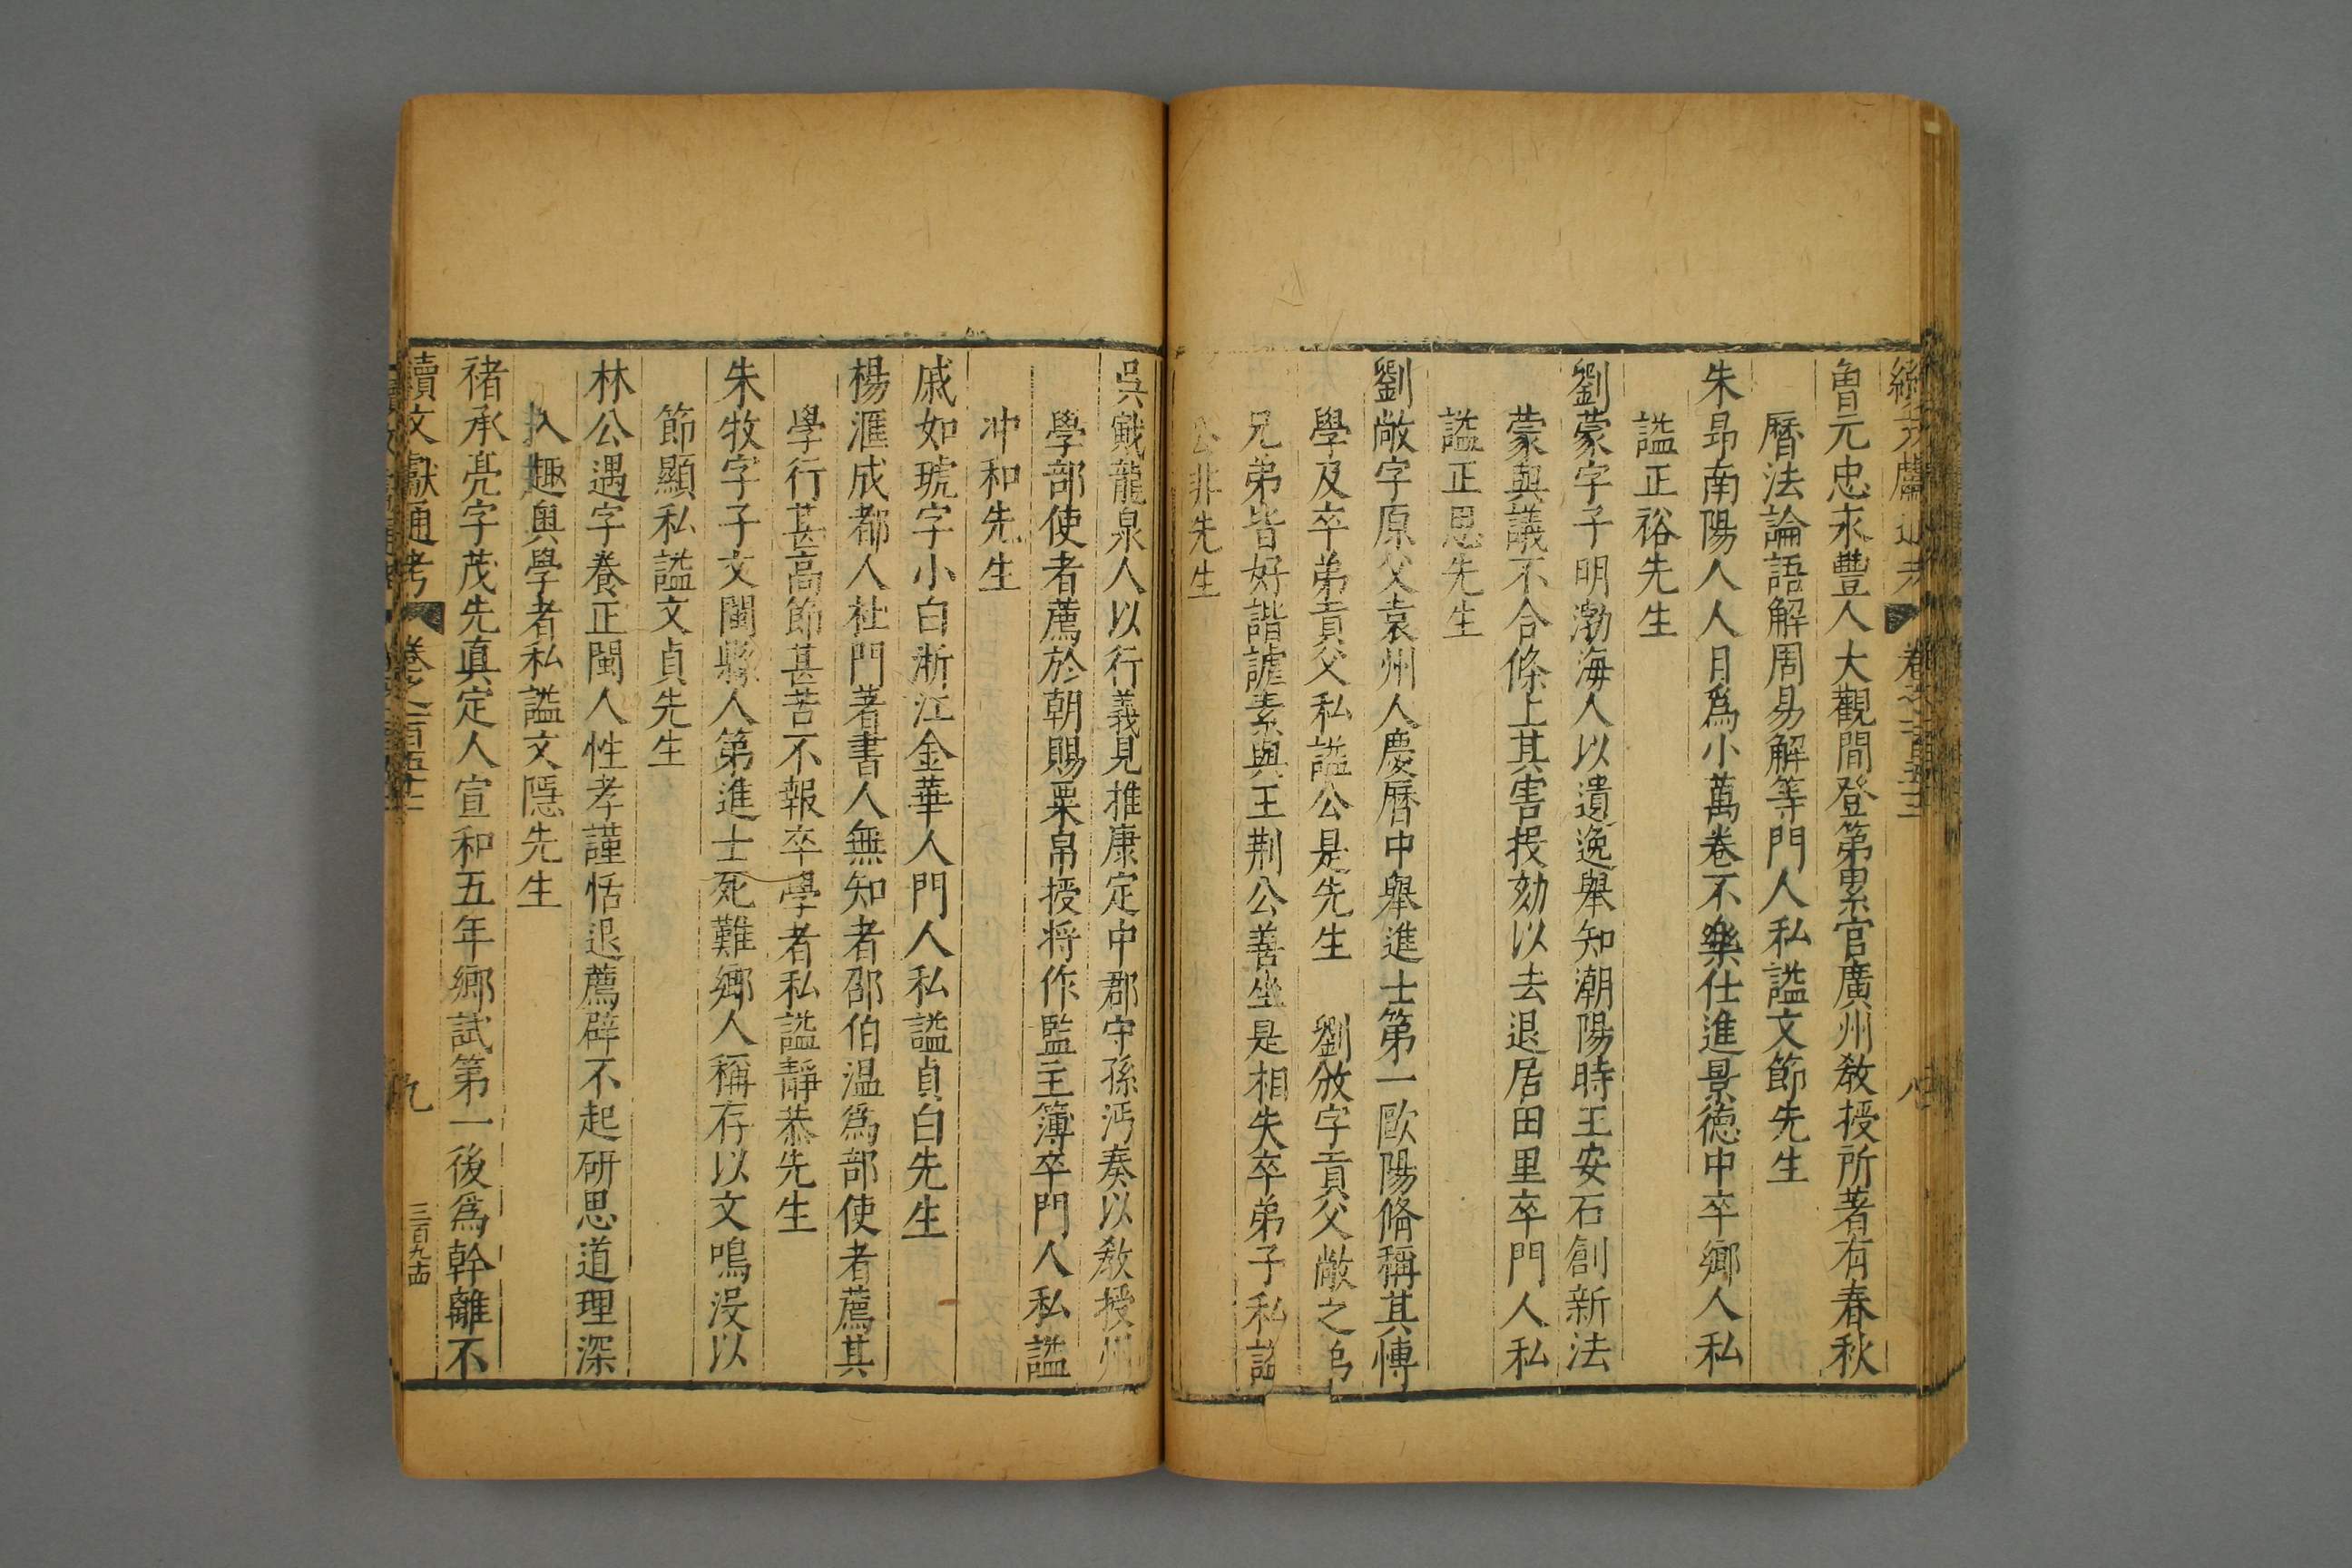 續文獻通考 卷之一百五十三 八
魯元忠永豐人大觀間登第累官廣州教授所著有春秋
曆法論語解周易解等門人私謚文節先生
朱昂南陽人人目爲小萬卷不樂仕進景德中卒鄉人私
謚正裕先生
劉蒙字子明渤海人以遺逸舉知潮陽時王安石創新法
蒙與議不合條上其害投劾以去退居田里卒門人私
謚正思先生
劉敞字原父袁州人慶曆中舉進士第一歐陽脩稱其博
學及卒弟貢父私謚公是先生 劉攽字貢父敞之弟
兄弟皆好諧謔素與王荆公善坐是相失卒弟子私謚
公非先生
吳戭龍泉人以行義見推康定中郡守孫沔奏以教授州
學部使者薦於朝賜粟帛授将作監主簿卒門人私謚
冲和先生
戚如琥字小白浙江金華人門人私謚貞白先生
楊滙成都人杜門著書人無知者邵伯溫爲部使者薦其
學行甚高節甚苦不報卒學者私謚靜恭先生
朱牧字子文閩縣人第進士死難鄉人稱存以文鳴没以
節顯私謚文貞先生
林公遇字養正閩人性孝謹恬退薦辟不起研思道理深
入趣奥學者私謚文隱先生
褚承亮字茂先真定人宣和五年鄉試第一後爲幹離不
續文獻通考 卷之一百五十三 九 三百九十四